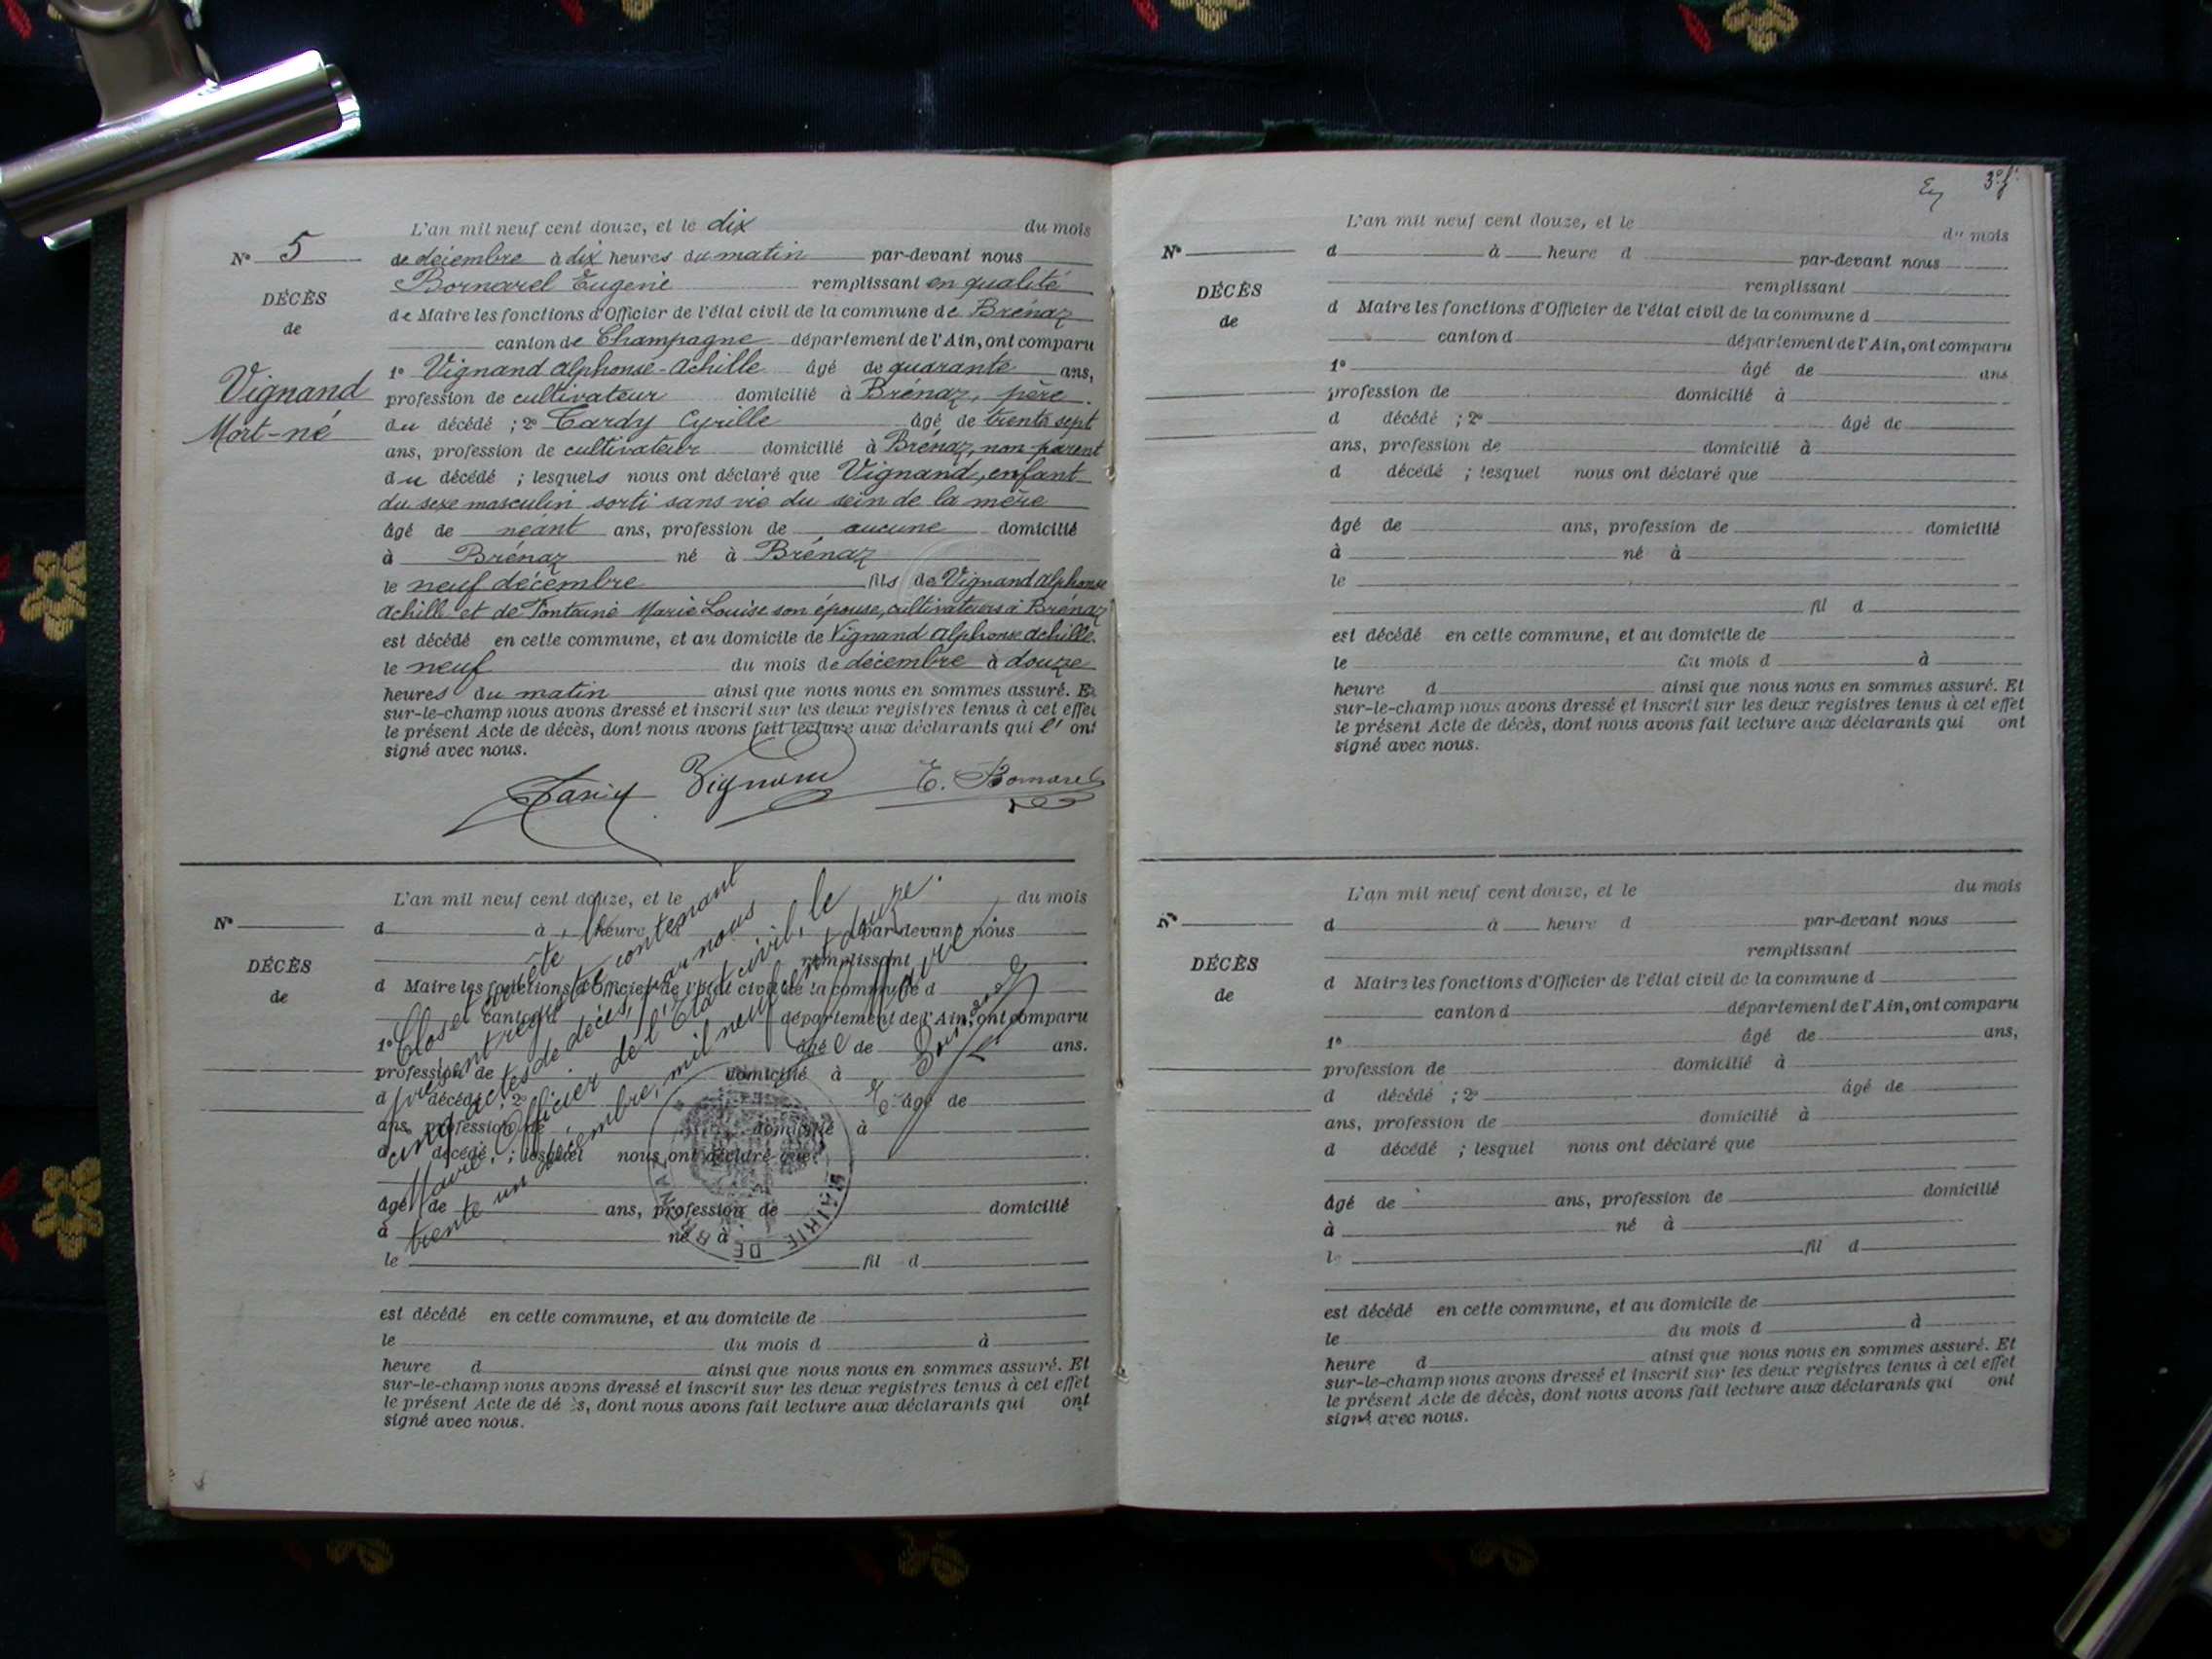 L'an mil neuf cent douze, et le dix du mois
N° 5
de décembre à dix heures du matin par-devant nous
Bornarel Eugène remplissant en qualité
DÉCÈS
de Maire les fonctions d'Officier de l'état civil de la commune de Brénaz
de
canton de Champagne département de l'Ain, ont comparu
Vignand
Mort-né
1° Vignand Alphonse-Achille âgé de quarante ans,
profession de cultivateur domicilié à Brénaz, père
du décédé ; 2° Tardy Cyrille âgé de trente sept
ans, profession de cultivateur domicilié à Brénaz, non parent
du décédé ; lesquels nous ont déclaré que Vignand, enfant
du sexe masculin sorti sans vie du sein de la mère
âgé de néant ans, profession de aucune domicilié
à Brénaz né à Brénaz
le neuf décembre fils de Vignand Alphonse
Achille et de Fontaine Marie Louise son épouse, cultivateurs à Brénaz
est décédé en cette commune, et au domicile de Vignand Alphonse Achille.
le neuf du mois de décembre à douze
heures du matin ainsi que nous nous en sommes assuré. Et
sur-le-champ nous avons dressé et inscrit sur les deux registres tenus à cet effet
le présent Acte de décès, dont nous avons fait lecture aux déclarants qui l' ont
signé avec nous.
Tardy Vignand E. Bornarel
L'an mil neuf cent douze, et le du mois
N°
d à heure d par-devant nous
remplissant
DÉCÈS
de
d Maire les fonctions d'Officier de l'état civil de la commune d
canton d département de l'Ain, ont comparu
1° âgé de ans.
profession de domicilié à
d décédé ; 2° âgé de
ans, profession de domicilié à
d décédé ; lesquel nous ont déclaré que
âgé de ans, profession de domicilié
à né à
le fil d
est décédé en cette commune, et au domicile de
le du mois d à
heure d ainsi que nous nous en sommes assuré. Et
sur-le-champ nous avons dressé et inscrit sur les deux registres tenus à cet effet
le présent Acte de décès, dont nous avons fait lecture aux déclarants qui ont
signé avec nous.
Clos et arrêté le
présent registre contenant
cinq actes de décès, par nous
Maire Officier de l'Etat civil, le
trente un décembre, mil neuf cent douze.
Le Maire
E. Bornarel
MAIRIE DE BRÉNAZ
3e f.
L'an mil neuf cent douze, et le du mois
N°
d à heure d par-devant nous
remplissant
DÉCÈS
de
d Maire les fonctions d'Officier de l'état civil de la commune d
canton d département de l'Ain, ont comparu
1° âgé de ans
profession de domicilié à
d décédé ; 2° âgé de
ans, profession de domicilié à
d décédé ; lesquel nous ont déclaré que
âgé de ans, profession de domicilié
à né à
le
fil d
est décédé en cette commune, et au domicile de
le du mois d à
heure d ainsi que nous nous en sommes assuré. Et
sur-le-champ nous avons dressé et inscrit sur les deux registres tenus à cet effet
le présent Acte de décès, dont nous avons fait lecture aux déclarants qui ont
signé avec nous.
L'an mil neuf cent douze, et le du mois
N°
d à heure d par-devant nous
remplissant
DÉCÈS
de
d Maire les fonctions d'Officier de l'état civil de la commune d
canton d département de l'Ain, ont comparu
1° âgé de ans,
profession de domicilié à
d décédé ; 2° âgé de
ans, profession de domicilié à
d décédé ; lesquel nous ont déclaré que
âgé de ans, profession de domicilié
à né à
le fil d
est décédé en cette commune, et au domicile de
le du mois d à
heure d ainsi que nous nous en sommes assuré. Et
sur-le-champ nous avons dressé et inscrit sur les deux registres tenus à cet effet
le présent Acte de décès, dont nous avons fait lecture aux déclarants qui ont
signé avec nous.